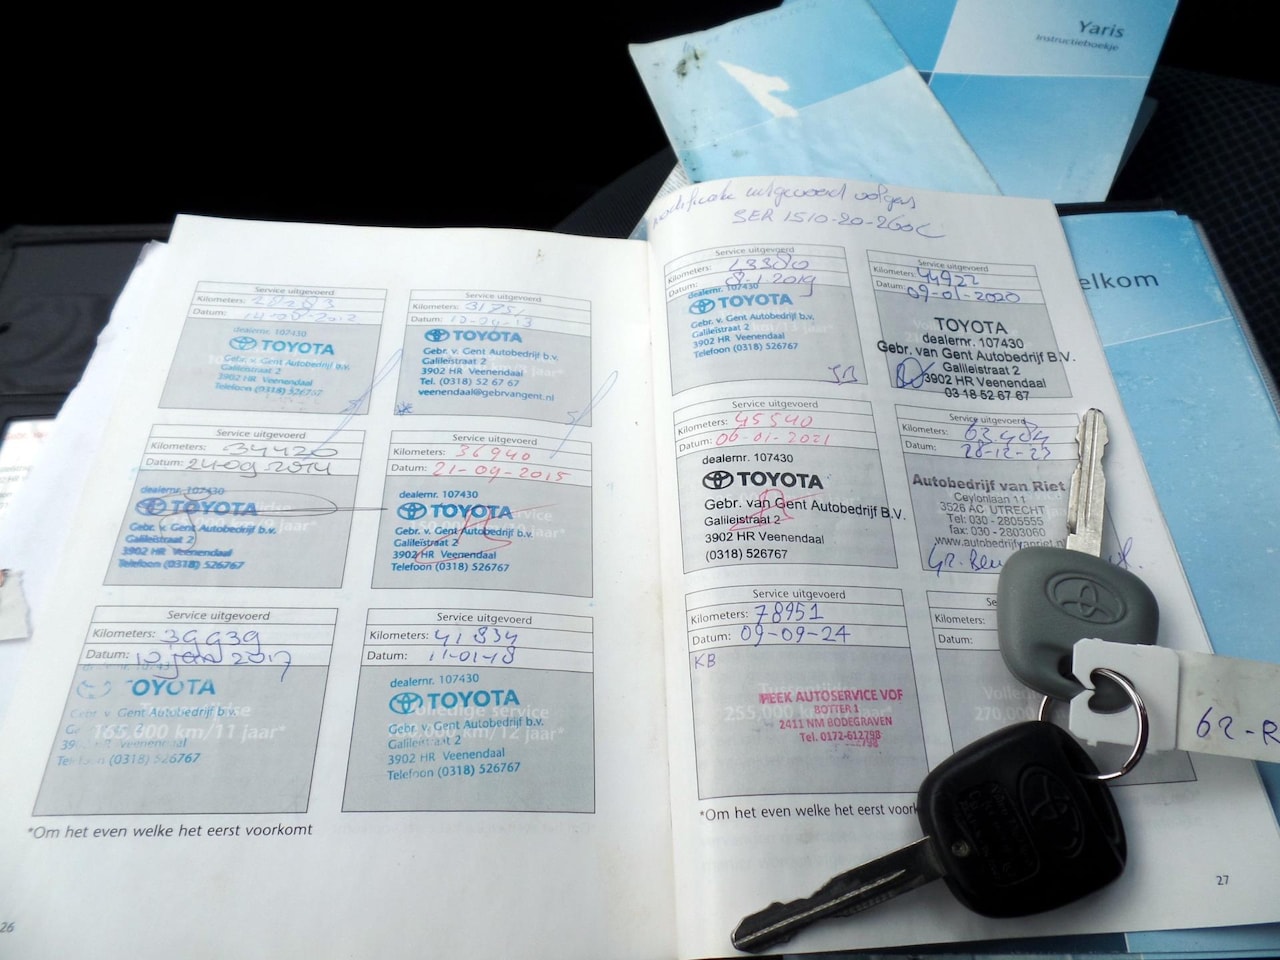 Yaris
Instructieboekje
elkom
modificatie uitgevoerd volgens
SER 1510-20-260C
Service uitgevoerd
Kilometers:
Datum:
dealernr. 107430
TOYOTA
Gebr. v. Gent Autobedrijf b.v.
Galileïstraat 2
3902 HR Veenendaal
Telefoon (0318) 526767
Service uitgevoerd
Kilometers: 31751
Datum: 12-04-13
TOYOTA
Gebr. v. Gent Autobedrijf b.v.
Galileïstraat 2
3902 HR Veenendaal
Tel. (0318) 52 67 67
veenendaal@gebrvangent.nl
Service uitgevoerd
Kilometers: 34420
Datum: 24 09 2014
dealernr. 107430
TOYOTA
Gebr. v. Gent Autobedrijf b.v.
Galileïstraat 2
3902 HR Veenendaal
Telefoon (0318) 526767
Service uitgevoerd
Kilometers: 36940
Datum: 21-09-2015
dealernr. 107430
TOYOTA
Gebr. v. Gent Autobedrijf b.v.
Galileïstraat 2
3902 HR Veenendaal
Telefoon (0318) 526767
Service uitgevoerd
Kilometers: 39939
Datum: jan 2017
OYOTA
Gebr. v. Gent Autobedrijf b.v.
165,000 km/11 jaar*
HR Veenendaal
(0318) 526767
Service uitgevoerd
Kilometers: 41834
Datum: 11-01-18
dealernr. 107430
TOYOTA
Volledige service
Gebr. v. Gent Autobedrijf b.v.
km/12 jaar*
Galileïstraat 2
3902 HR Veenendaal
Telefoon (0318) 526767
*Om het even welke het eerst voorkomt
26
Service uitgevoerd
Kilometers:
Datum: 8-1-2019
dealernr. 107430
TOYOTA
Gebr. v. Gent Autobedrijf b.v.
Galileïstraat 2
3902 HR Veenendaal
Telefoon (0318) 526767
Service uitgevoerd
Kilometers: 44922
Datum: 09-01-2020
TOYOTA
dealernr. 107430
Gebr. van Gent Autobedrijf B.V.
Galileïstraat 2
3902 HR Veenendaal
03 18 52 67 67
Service uitgevoerd
Kilometers: 45540
Datum: 06-01-2021
dealernr. 107430
TOYOTA
Gebr. van Gent Autobedrijf B.V.
Galileïstraat 2
3902 HR Veenendaal
(0318) 526767
Service uitgevoerd
Kilometers: 63484
Datum: 28-12-23
Autobedrijf van Riet
Ceylonlaan 11
3526 AC UTRECHT
Tel: 030 - 2805555
fax: 030 - 2803060
www.autobedrijfvanriet.nl
Service uitgevoerd
Kilometers: 78951
Datum: 09-09-24
KB
MEEK AUTOSERVICE VOF
BOTTER 1
255,000
2411 NM BODEGRAVEN
Tel. 0172-612798
Kilometers:
Datum:
270,000
*Om het even welke het eerst voork
27
62-R